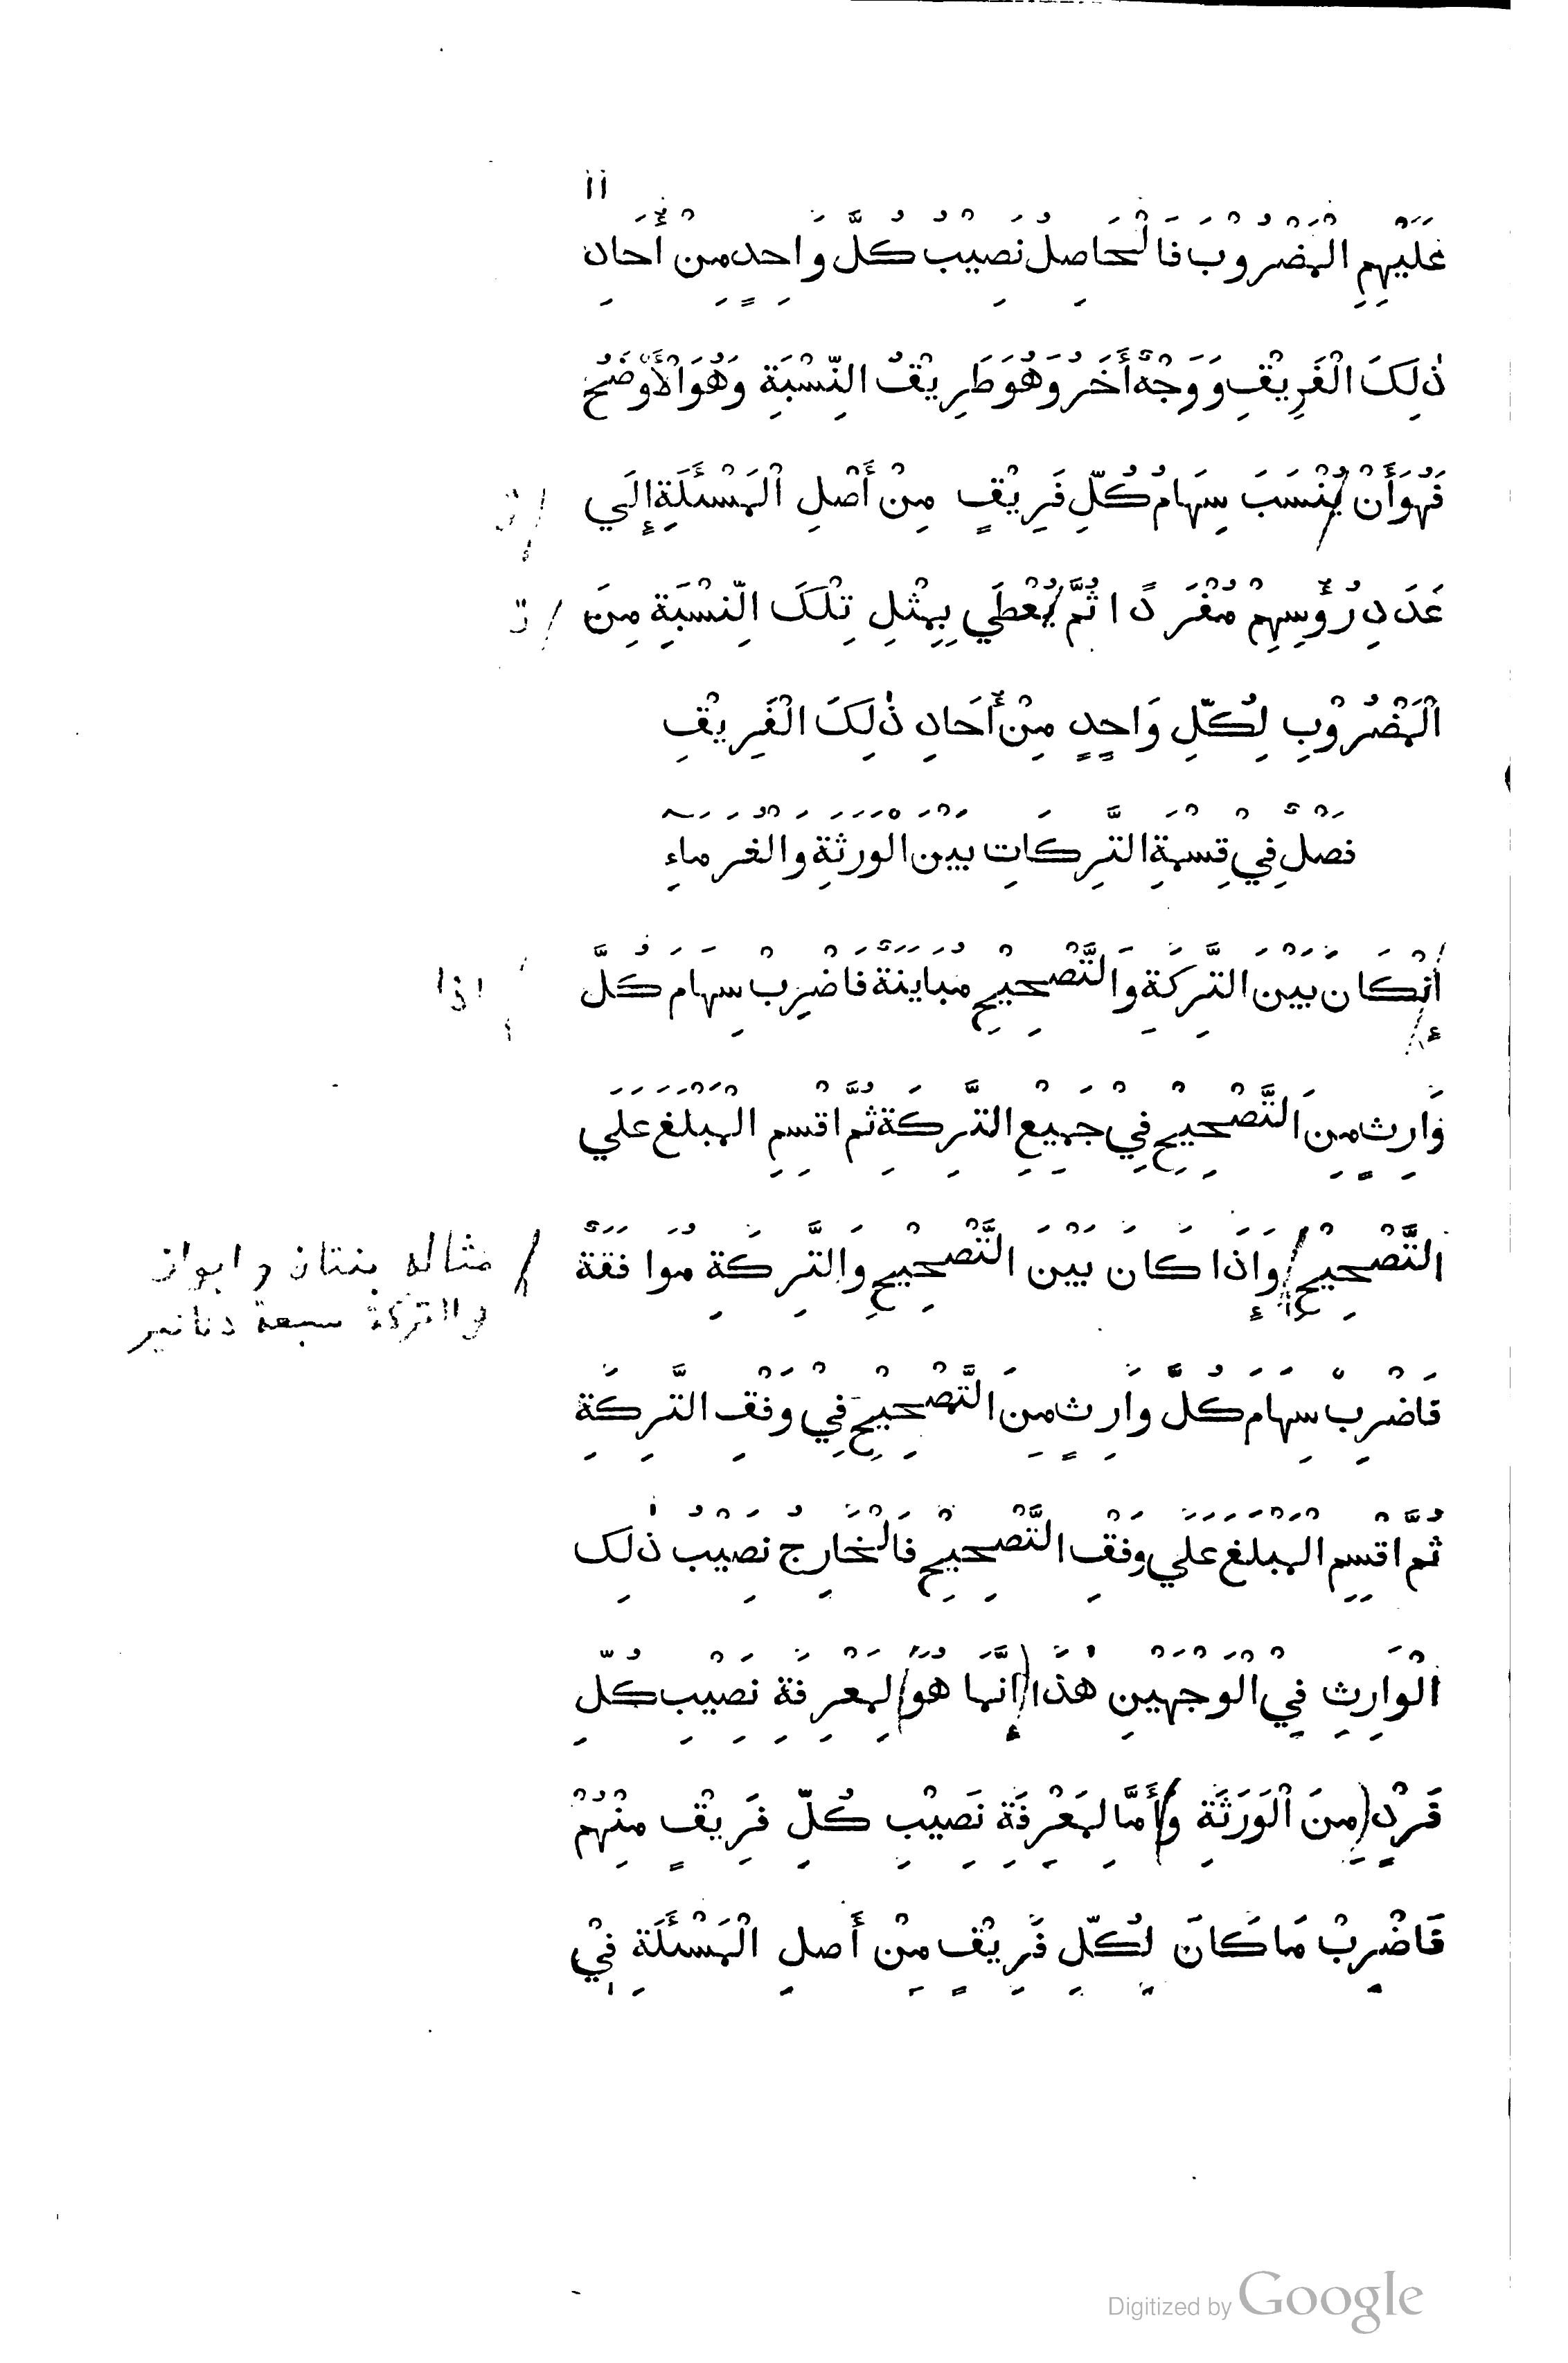 ١١
عَلَيْهِمِ الْمَضْرُوْبَ فَالْحَاصِلُ نَصِيْبُ كُلَّ وَاحِدٍ مِنْ أَحَادِ
ذٰلِكَ الْفَرِيْقِ وَوَجْهٌ أَخَرُ وَهُوَ طَرِيْقُ النِّسْبَةِ وَهُوَ الْأَوْضَحُ
فَهُوَ أَنْ يُنْسَبَ سِهَامُ كُلِّ فَرِيْقٍ مِنْ أَصْلِ الْمَسْئَلَةِ إِلَي
عَدَدِ رُؤُسِهِمْ مُفْرَدًا ثُمَّ يُعْطَي بِمِثْلِ تِلْكَ النِّسْبَةِ مِنَ
الْمَضْرُوْبِ لِكُلِّ وَاحِدٍ مِنْ أَحَادِ ذٰلِكَ الْفَرِيْقِ
فَصْلٌ فِيْ قِسْمَةِ التَّرِكَاتِ بَيْنَ الْوَرَثَةِ وَالْغُرَمَاءِ
أِنْ كَانَ بَيْنَ التَّرِكَةِ وَالتَّصْحِيْحِ مُبَايَنَةٌ فَاضْرِبْ سِهَامَ كُلَّ
اذا
وَارِثٍ مِنَ التَّصْحِيْحِ فِيْ جَمِيْعِ التَّرِكَةِ ثُمَّ اقْسِمِ الْمَبْلَغَ عَلَي
التَّصْحِيْحِ وَإِذَا كَانَ بَيْنَ التَّصْحِيْحِ وَالتَّرِكَةِ مُوَافَقَةٌ
مثاله بنتان وابوان
والتركة سبعة دنانير
فَاضْرِبْ سِهَامَ كُلَّ وَارِثٍ مِنَ التَّصْحِيْحِ فِيْ وَفْقِ التَّرِكَةِ
ثُمَّ اقْسِمِ الْمَبْلَغَ عَلَي وَفْقِ التَّصْحِيْحِ فَالْخَارِجُ نَصِيْبُ ذٰلِكَ
الْوَارِثِ فِيْ الْوَجْهَيْنِ هٰذَا إِنَّمَا هُوَ لِمَعْرِفَةِ نَصِيْبِ كُلِّ
فَرْدٍ مِنَ الْوَرَثَةِ وَأَمَّا لِمَعْرِفَةِ نَصِيْبِ كُلِّ فَرِيْقٍ مِنْهُمْ
فَاضْرِبْ مَا كَانَ لِكُلِّ فَرِيْقٍ مِنْ أَصلِ الْمَسْئَلَةِ فِيْ
Digitized by Google